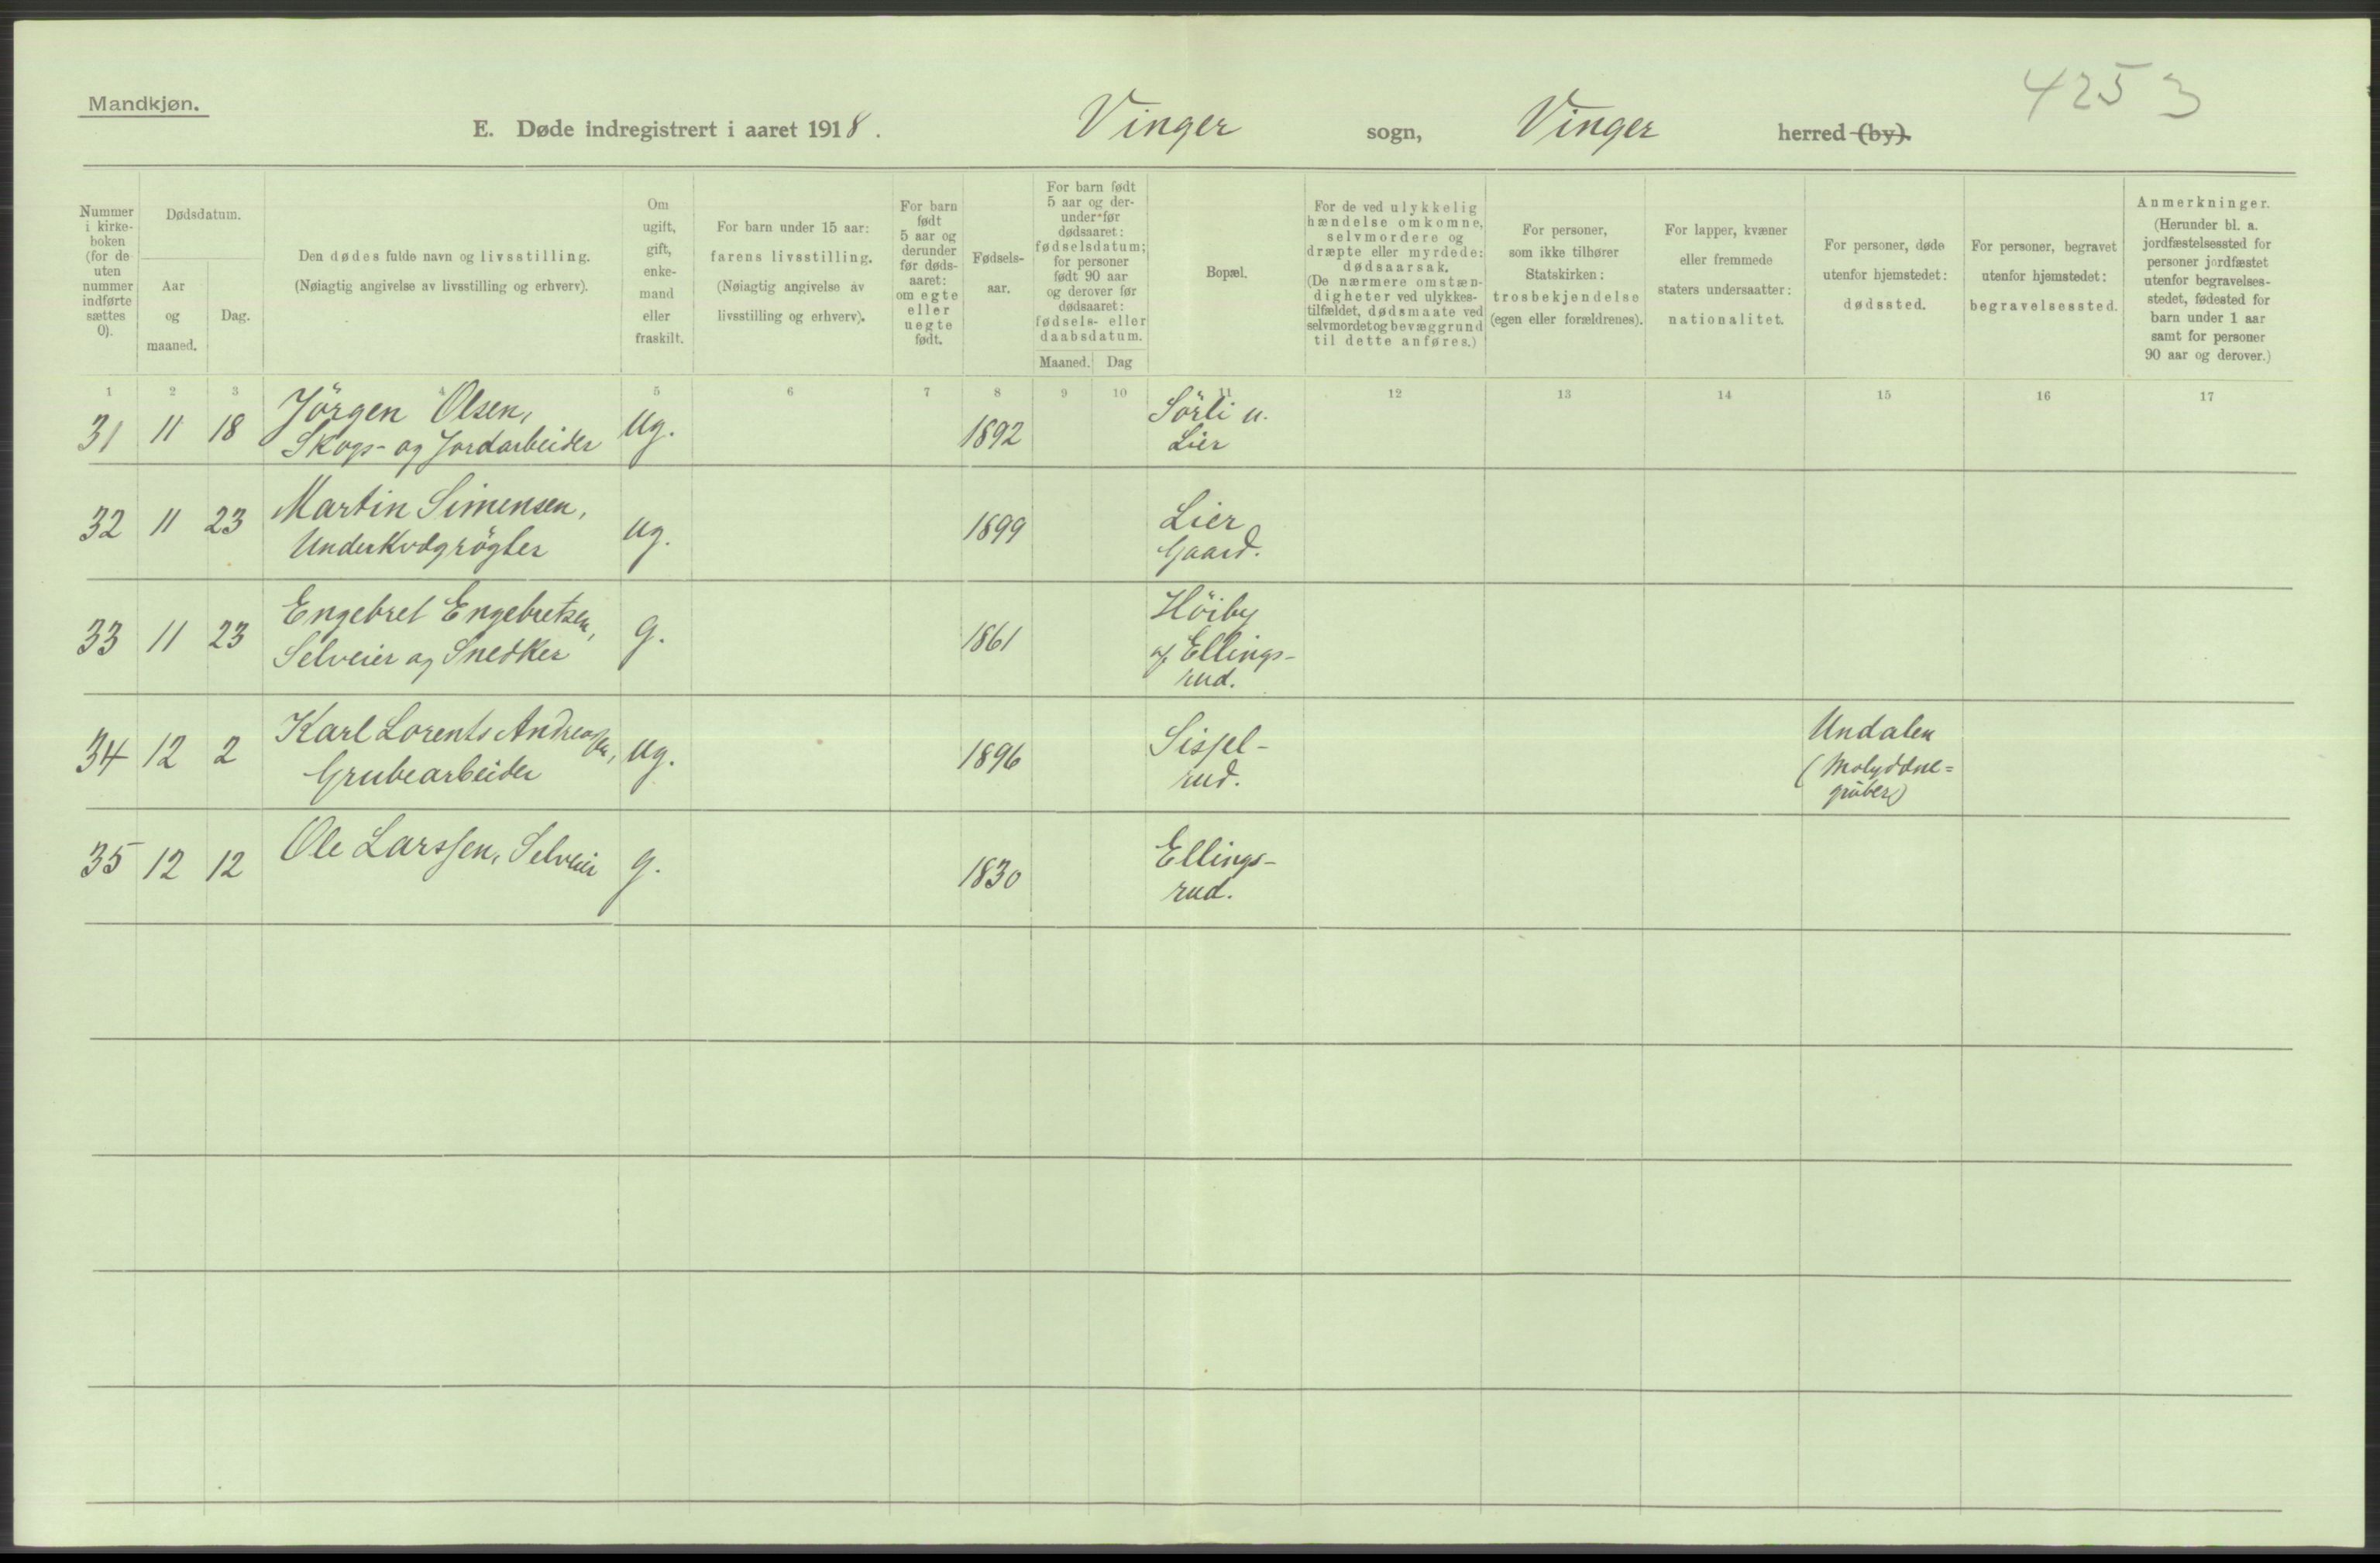 Mandkjøn.
4253
E. Døde indregistrert i aaret 1918. Vinger sogn, Vinger herred (by).
Nummer
i kirke-
boken
(for de
uten
nummer
indførte
sættes
0).
Dødsdatum.
Aar
og
maaned.
Dag.
Den dødes fulde navn og livsstilling.
(Nøiagtig angivelse av livsstilling og erhverv).
Om
ugift,
gift,
enke-
mand
eller
fraskilt.
For barn under 15 aar:
farens livsstilling.
(Nøiagtig angivelse av
livsstilling og erhverv).
For barn
født
5 aar og
derunder
før døds-
aaret:
om egte
eller
uegte
født.
Fødsels-
aar.
For barn født
5 aar og der-
under før
dødsaaret:
fødselsdatum;
for personer
født 90 aar
og derover før
dødsaaret:
fødsels- eller
daabsdatum.
Maaned. Dag
Bopæl.
For de ved ulykkelig
hændelse omkomne,
selvmordere og
dræpte eller myrdede:
dødsaarsak.
(De nærmere omstæn-
digheter ved ulykkes-
tilfældet, dødsmaate ved
selvmordet og bevæggrund
til dette anføres.)
For personer,
som ikke tilhører
Statskirken:
trosbekjendelse
(egen eller forældrenes).
For lapper, kvæner
eller fremmede
staters undersaatter:
nationalitet.
For personer, døde
utenfor hjemstedet:
dødssted.
For personer, begravet
utenfor hjemstedet:
begravelsessted.
Anmerkninger.
(Herunder bl. a.
jordfæstelsessted for
personer jordfæstet
utenfor begravelses-
stedet, fødested for
barn under 1 aar
samt for personer
90 aar og derover.)
1 2 3 4 5 6 7 8 9 10 11 12 13 14 15 16 17
31 11 18 Jörgen Olsen, ug. 1892 Sörli u.
Skogs- og Jordarbeider Lier
32 11 23 Martin Simensen, ug. 1899 Lier
Underkvægrögter Gaard.
33 11 23 Engebret Engebretsen, g. 1861 Höiby
Selveier og Snedker af Ellings-
rud.
34 12 2 Karl Lorents Andreassen, ug. 1896 Sisjel- Undalen
Grubearbeider rud. (Molybdæne-
gruber)
35 12 12 Ole Larssen, Selveier g. 1830 Ellings-
rud.